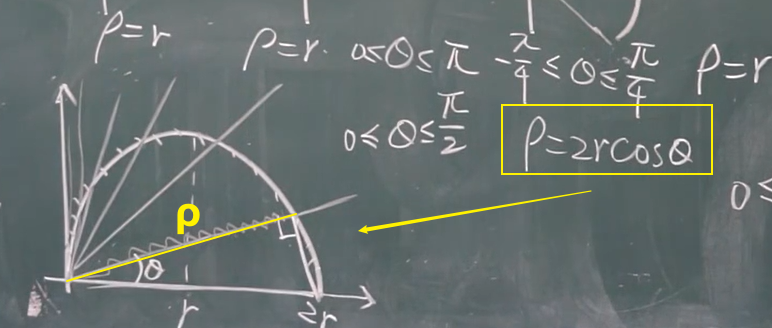 ρ=r
ρ=r. 0≤θ≤π
-π/4≤θ≤π/4
ρ=r
0≤θ≤π/2
ρ=2rcosθ
0≤
ρ
θ
r
2r